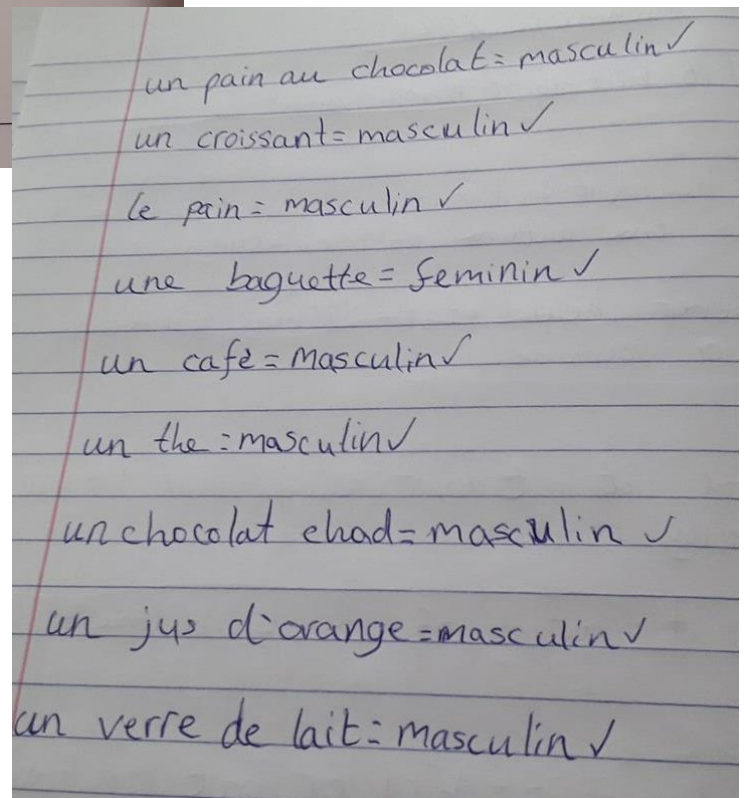 un pain au chocolat = masculin ✓
un croissant = masculin ✓
le pain = masculin ✓
une baguette = feminin ✓
un cafè = masculin ✓
un the = masculin ✓
un chocolat ehad = masculin ✓
un jus d'orange = masculin ✓
un verre de lait = masculin ✓